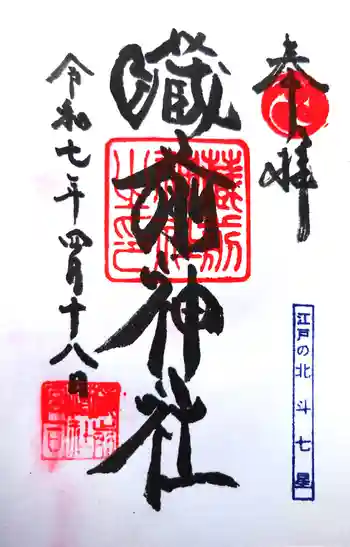 奉拝
蔵前神社
令和七年四月十八日
江戸の北斗七星